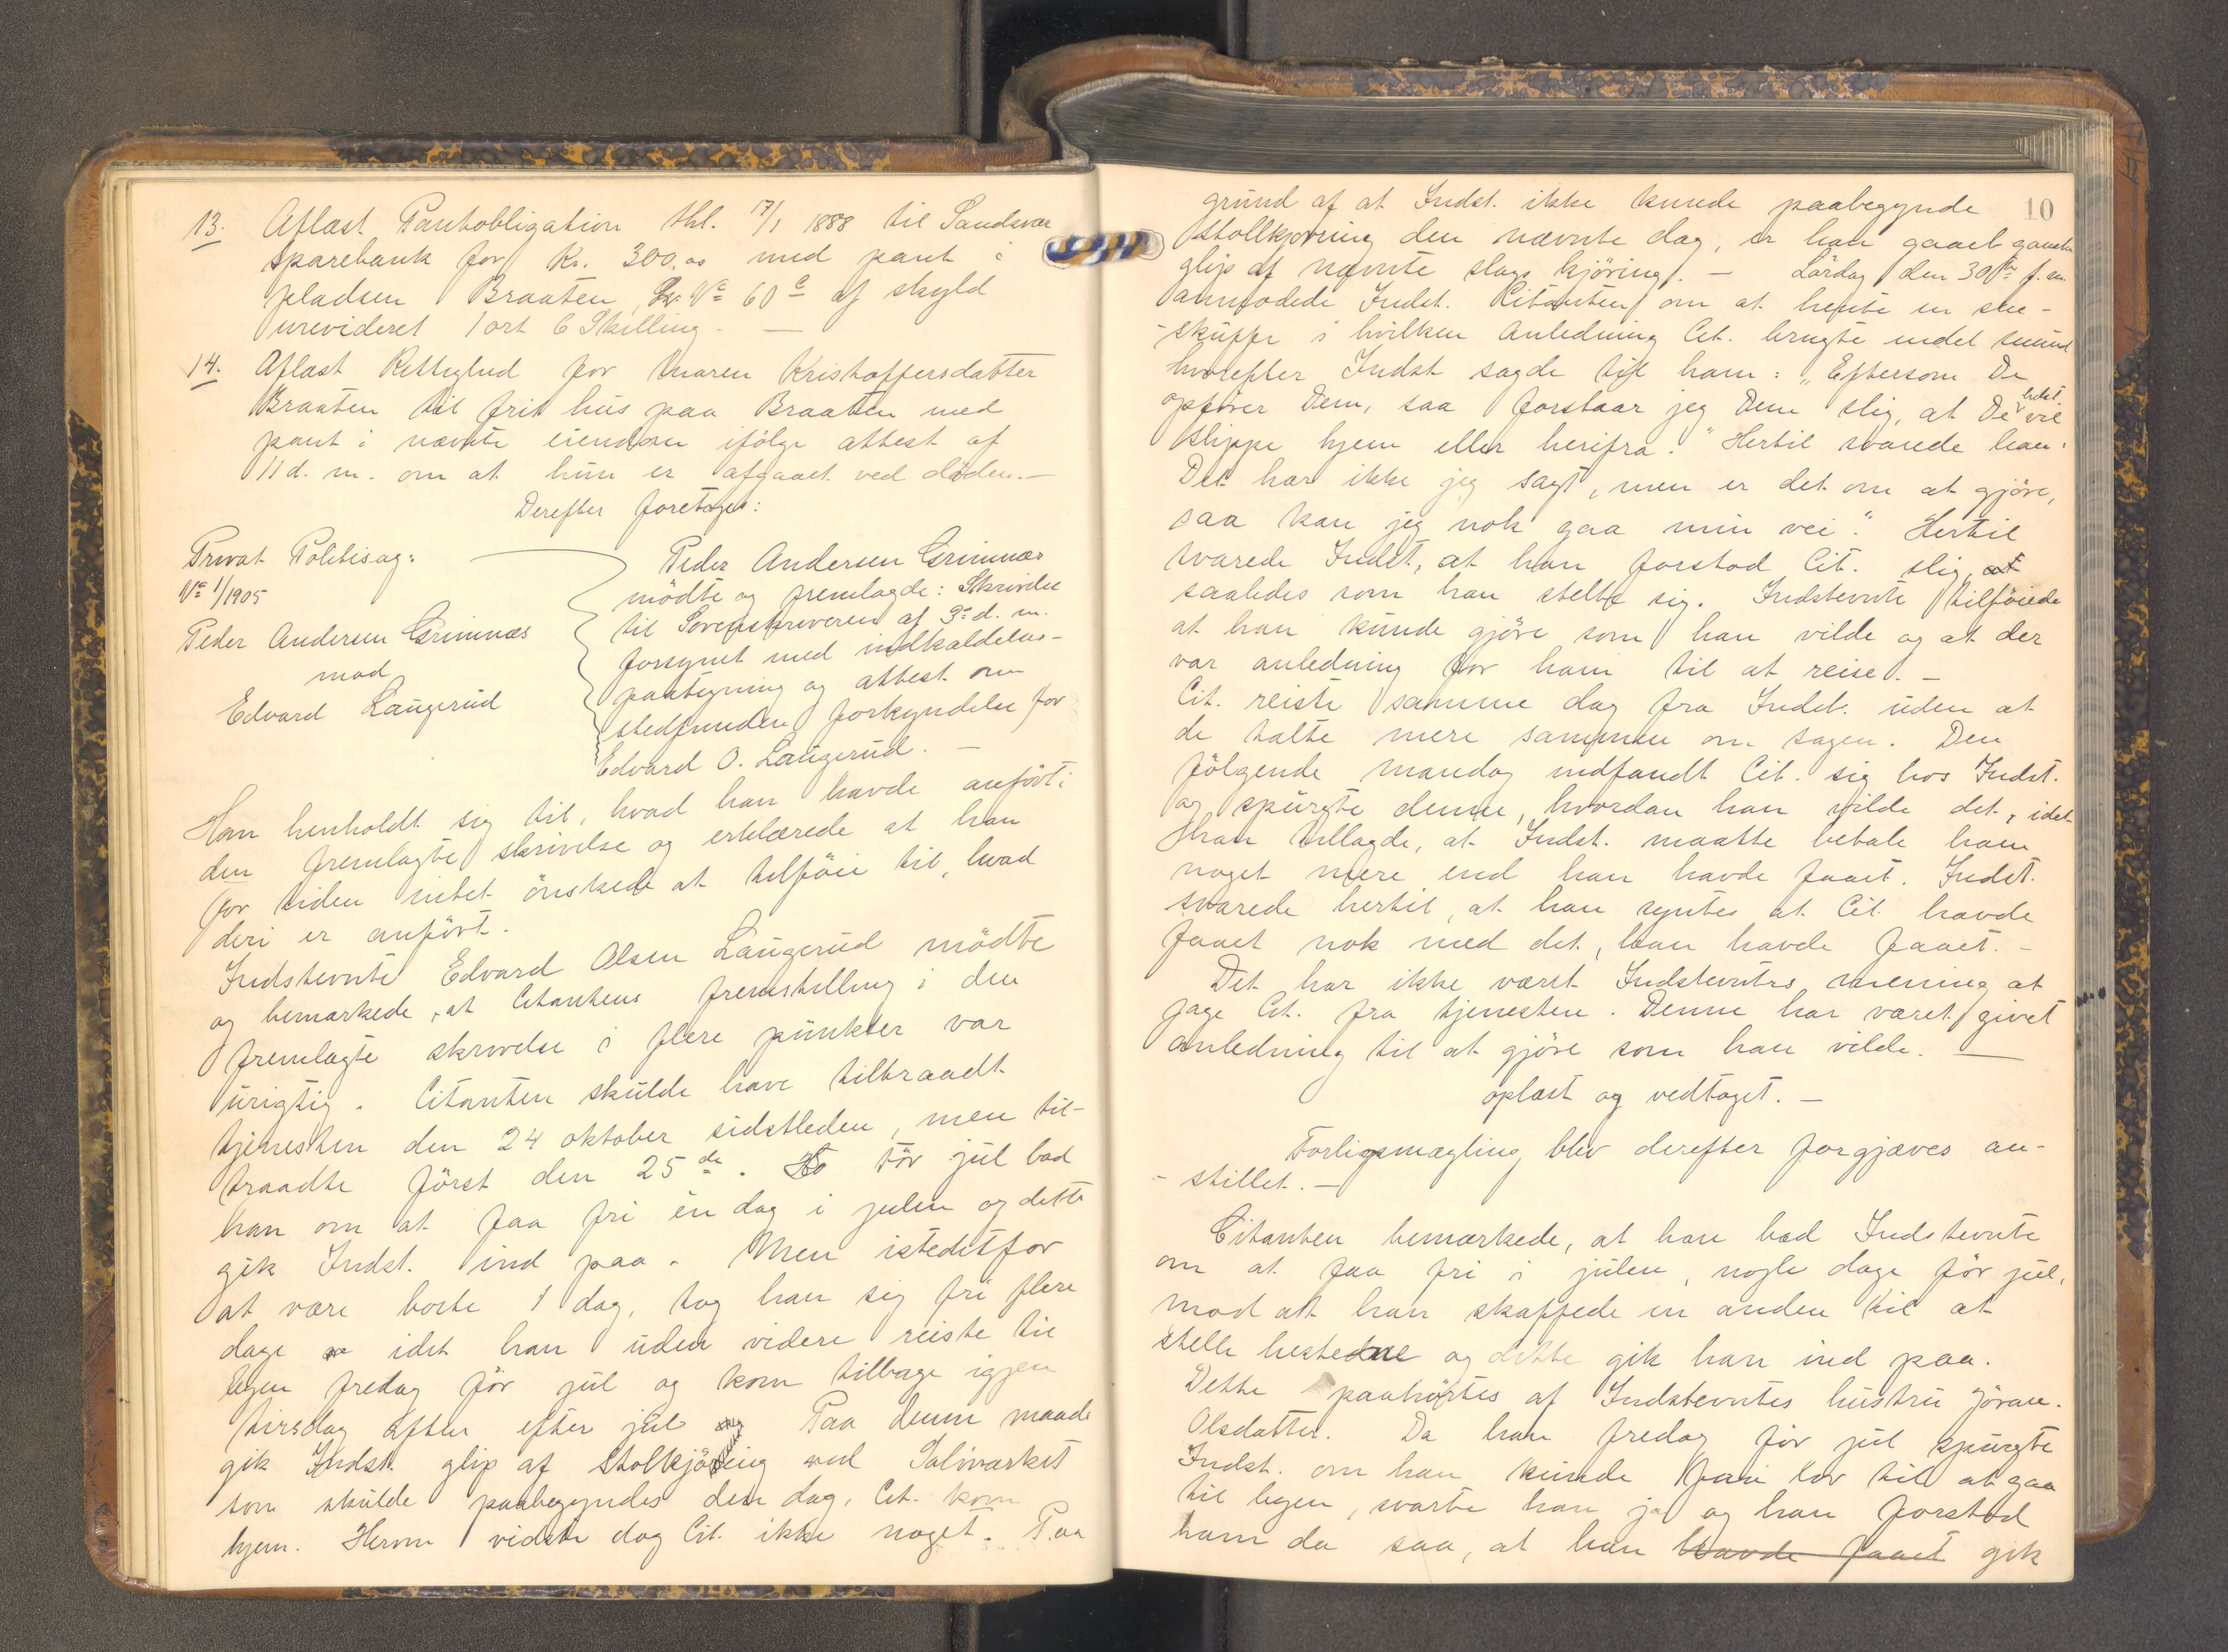 13. Aflæst Pantobligation thl. 17/1 1888 til Sandsvær
Sparebank for Kr. 300.00 med pant i
pladsen Braaten, No 60 c af skyld
urevideret 1 ort 6 Skilling. —
14. Aflæst Rettighed for Maren Kristoffersdatter
Braaten til frit hus paa Braaten med
pant i nævnte eiendom ifölge attest af
11 d. m. om at hun er afgaaet ved döden. —
Derefter foretoges:
Privat Politisag:
No 1/1905
Peder Andersen Grimnæs
mod
Edvard Laugerud
Peder Andersen Grimnæs
mödte og fremlagde: Skrivelse
til Sorenskriveren af 3 d. m.
forsynet med indkaldelses-
paategning og attest om
stedfunden forkyndelse for
Edvard O. Laugerud. —
Han henholdt sig til, hvad han havde anfört i
den fremlagte skrivelse og erklærede at han
for tiden intet önskede at tilföie til, hvad
deri er anfört.
Indstevnte Edvard Olsen Laugerud mödte
og bemærkede, at Citantens fremstilling i den
fremlagte skrivelse i flere punkter var
urigtig. Citanten skulde have tiltraadt
tjenesten den 24 oktober sidstleden, men til-
traadte först den 25de. För jul bad
han om at faa fri én dag i julen og dette
gik Indst. ind paa. Men istedetfor
at være borte 1 dag, tog han sig fri flere
dage idet han uden videre reiste til
byen fredag för jul og kom tilbage igjen
tirsdag aften efter jul Paa denne maade
gik Indst. glip af Stolkjöring ved Sölvværket
som skulde paabegyndes den dag, Cit. kom
hjem. Herom vidste dog Cit. ikke noget. Paa
10
grund af at Indst. ikke kunde paabegynde
stollkjöring den nævnte dag, er han gaaet ganske
glip af nævnte slags kjöring. — Lördag den 30te f. m.
anmodede Indst. Citanten om at hente en sne-
-skuffe i hvilken Anledning Cit. brugte endel
hvorefter Indst sagde til ham: "Eftersom De
opförer Dem, saa forstaar jeg Dem slig, at De helst vil
slippe hjem eller herifra." Hertil svarede han:
"Det har ikke jeg sagt, men er det om at gjöre,
saa kan jeg nok gaa min vei". Hertil
svarede Indst, at han forstod Cit. slig,
saaledes som han stelte sig. Indstevnte tilföiede
at han kunde gjöre som han vilde og at der
var anledning for ham til at reise. —
Cit. reiste samme dag fra Indst. uden at
de talte mere sammen om sagen. Den
fölgende mandag indfandt Cit. sig hos Indst.
og spurgte denne, hvordan han vilde det, idet
han tillagde, at Indst. maatte betale ham
noget mere end han havde faaet. Indst.
svarede hertil, at han syntes at Cit. havde
faaet nok med det, han havde faaet. —
Det har ikke været Indstevntes mening at
jage Cit. fra tjenesten. Denne har været givet
anledning til at gjöre som han vilde. —
oplæst og vedtaget. —
Forligsmægling blev derefter forgjæves an-
- stillet. —
Citanten bemærkede, at han bad Indstevnte
om at faa fri i julen, nogle dage för jul,
mod at han skaffede en anden til at
stelle hestene og dette gik han ind paa.
Dette paahörtes af Indstevntes hustru Jöran.
Olsdatter. Da han fredag för jul spurgte
Indst. om han kunde faa lov til at gaa
til byen, svarte han ja og han forstod
ham da saa, at han havde faaet gik